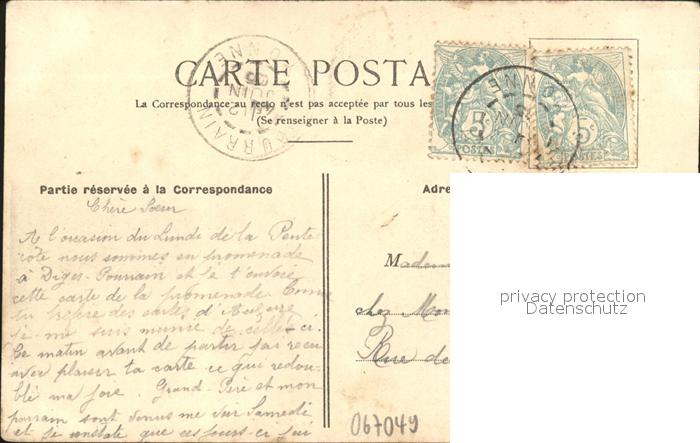 CARTE POSTA
La Correspondance au recto n'est pas acceptée par tous les
(Se renseigner à la Poste)
POURRAIN
YONNE
JUIN
POSTES
Partie réservée à la Correspondance
Adre
Chère Sœur
A l'occasion du Lundi de la Pente-
côte nous sommes en promenade
à Diges-Pourrain et je t'envoie
cette carte de la promenade. Comme
tu des cartes d'Auxerre
je me suis munie de celle-ci.
Ce matin avant de partir j'ai reçu
avec plaisir ta carte ce qui redou-
blé ma joie. Grand-Père et mon
parrain sont venus me voir Samedi
et je constate que ces jours-ci j'ai
Madem
chez Mon
Rue de
privacy protection
Datenschutz
067049